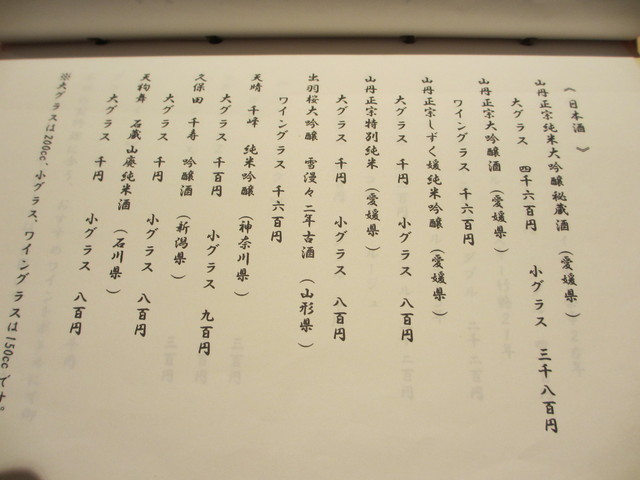 《日本酒》
山丹正宗純米大吟醸秘蔵酒（愛媛県）
大グラス 四千六百円 小グラス 三千八百円
山丹正宗大吟醸酒（愛媛県）
ワイングラス 千六百円
山丹正宗しずく媛純米吟醸（愛媛県）
大グラス 千円 小グラス 八百円
山丹正宗特別純米（愛媛県）
大グラス 千円 小グラス 八百円
出羽桜大吟醸 雪漫々二年古酒（山形県）
ワイングラス 千六百円
天晴 千峰 純米吟醸（神奈川県）
大グラス 千百円 小グラス 九百円
久保田 千寿 吟醸酒（新潟県）
大グラス 千円 小グラス 八百円
天狗舞 石蔵 山廃純米酒（石川県）
大グラス 千円 小グラス 八百円
※大グラスは200cc、小グラス、ワイングラスは150ccです。